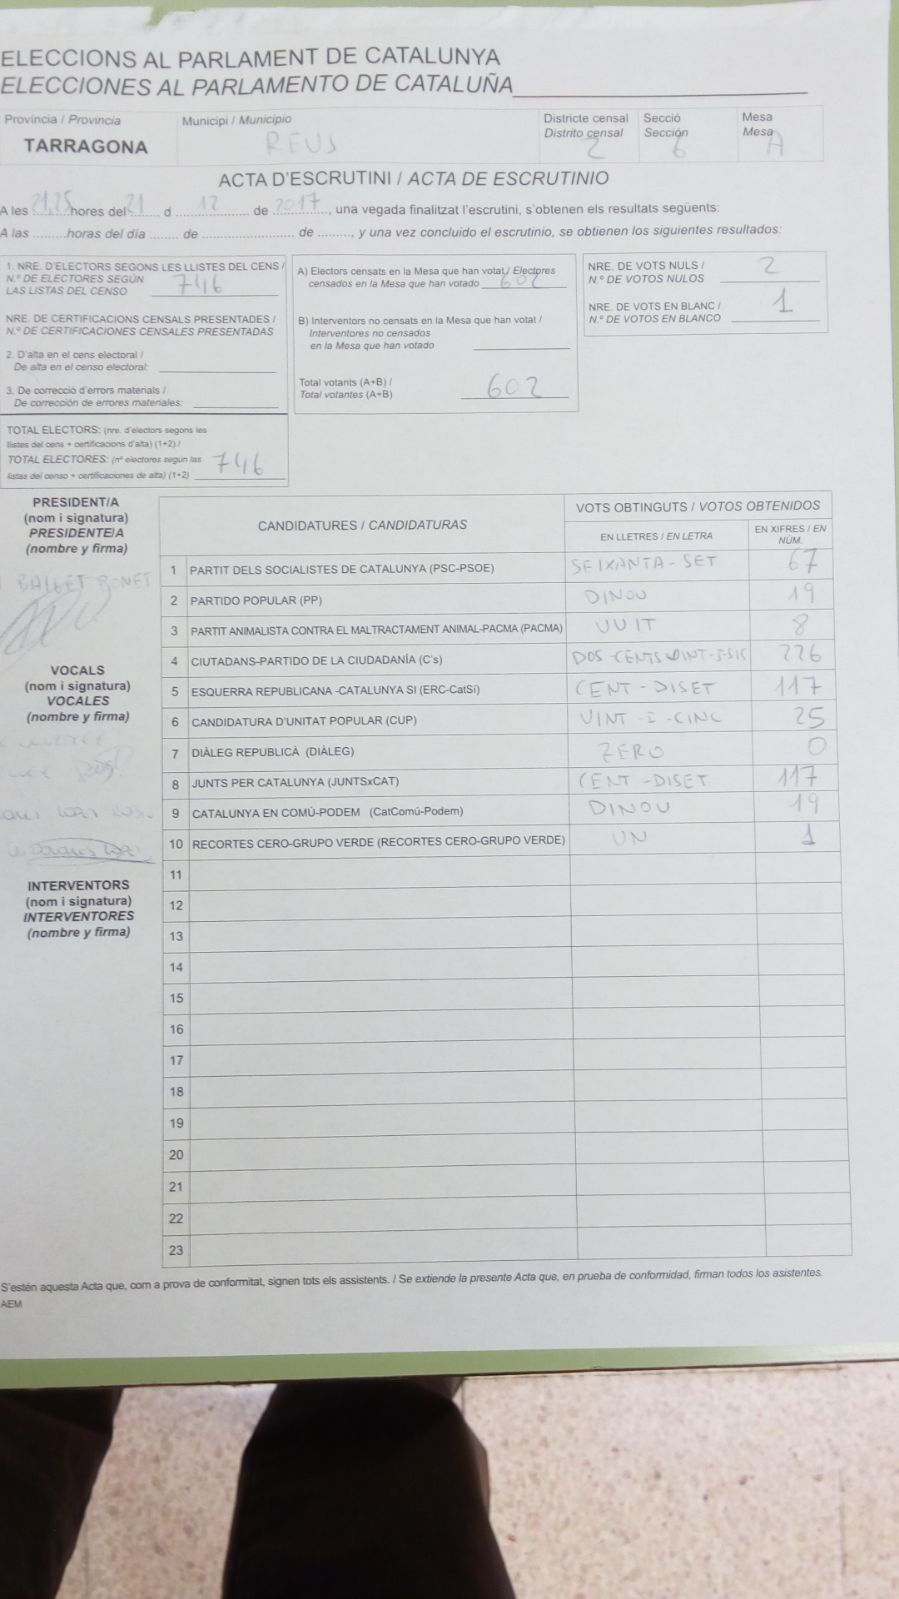 ELECCIONS AL PARLAMENT DE CATALUNYA
ELECCIONES AL PARLAMENTO DE CATALUÑA
Província / Provincia
TARRAGONA
Municipi / Municipio
REUS
Districte censal
Distrito censal
2
Secció
Sección
6
Mesa
Mesa
A
ACTA D'ESCRUTINI / ACTA DE ESCRUTINIO
A les 21,25 hores del 21 d 12 de 2017, una vegada finalitzat l'escrutini, s'obtenen els resultats següents:
A las ......... horas del día ....... de ....................... de ........, y una vez concluido el escrutinio, se obtienen los siguientes resultados:
1. NRE. D'ELECTORS SEGONS LES LLISTES DEL CENS /
N.º DE ELECTORES SEGÚN
LAS LISTAS DEL CENSO 746
NRE. DE CERTIFICACIONS CENSALS PRESENTADES /
N.º DE CERTIFICACIONES CENSALES PRESENTADAS
2. D'alta en el cens electoral /
De alta en el censo electoral:
3. De correcció d'errors materials /
De corrección de errores materiales:
TOTAL ELECTORS: (nre. d'electors segons les
llistes del cens + certificacions d'alta) (1+2) /
TOTAL ELECTORES: (nº electores según las
listas del censo + certificaciones de alta) (1+2) 746
A) Electors censats en la Mesa que han votat / Electores
censados en la Mesa que han votado 602
B) Interventors no censats en la Mesa que han votat /
Interventores no censados
en la Mesa que han votado
Total votants (A+B) /
Total votantes (A+B) 602
NRE. DE VOTS NULS /
N.º DE VOTOS NULOS 2
NRE. DE VOTS EN BLANC /
N.º DE VOTOS EN BLANCO 1
PRESIDENT/A
(nom i signatura)
PRESIDENTE/A
(nombre y firma)
BALLET BONET
VOCALS
(nom i signatura)
VOCALES
(nombre y firma)
INTERVENTORS
(nom i signatura)
INTERVENTORES
(nombre y firma)
CANDIDATURES / CANDIDATURAS
VOTS OBTINGUTS / VOTOS OBTENIDOS
EN LLETRES / EN LETRA
EN XIFRES / EN
NÚM.
1 PARTIT DELS SOCIALISTES DE CATALUNYA (PSC-PSOE) SEIXANTA-SET 67
2 PARTIDO POPULAR (PP) DINOU 19
3 PARTIT ANIMALISTA CONTRA EL MALTRACTAMENT ANIMAL-PACMA (PACMA) VUIT 8
4 CIUTADANS-PARTIDO DE LA CIUDADANÍA (C's) DOS-CENTS VINT-I-SIS 226
5 ESQUERRA REPUBLICANA -CATALUNYA SÍ (ERC-CatSí) CENT-DISET 117
6 CANDIDATURA D'UNITAT POPULAR (CUP) VINT-I-CINC 25
7 DIÀLEG REPUBLICÀ (DIÀLEG) ZERO 0
8 JUNTS PER CATALUNYA (JUNTSxCAT) CENT-DISET 117
9 CATALUNYA EN COMÚ-PODEM (CatComú-Podem) DINOU 19
10 RECORTES CERO-GRUPO VERDE (RECORTES CERO-GRUPO VERDE) UN 1
11
12
13
14
15
16
17
18
19
20
21
22
23
S'estén aquesta Acta que, com a prova de conformitat, signen tots els assistents. / Se extiende la presente Acta que, en prueba de conformidad, firman todos los asistentes.
AEM